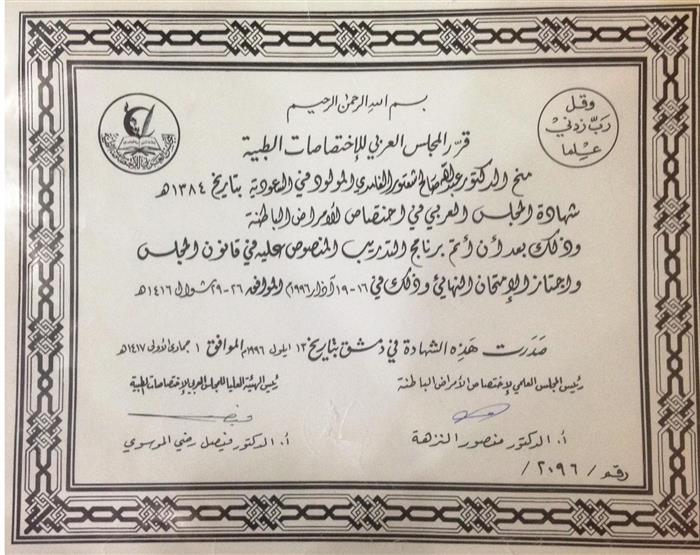 بسم الله الرحمن الرحيم
وقل
رب زدني
علما
قرر المجلس العربي للإختصاصات الطبية
منح الدكتور صالح الغامدي المولود في السعودية بتاريخ ١٣٨٤ هـ
شهادة المجلس العربي في اختصاص الأمراض الباطنة
وذلك بعد أن أتم برنامج التدريب المنصوص عليه في قانون المجلس
واجتاز الإمتحان النهائي وذلك في ١٦-١٩ آذار ١٩٩٦م الموافق ٢٦-٢٩ شوال ١٤١٦ هـ
صدرت هذه الشهادة في دمشق بتاريخ ١٣ ايلول ١٩٩٦م الموافق ١ جمادى الأولى ١٤١٧ هـ
رئيس المجلس العلمي لإختصاص الأمراض الباطنة
رئيس الهيئة العليا للمجلس العربي للإختصاصات الطبية
أ. الدكتور منصور النزهة
أ. الدكتور فيصل رضي الموسوي
رقم / ٢٠٩٦ /